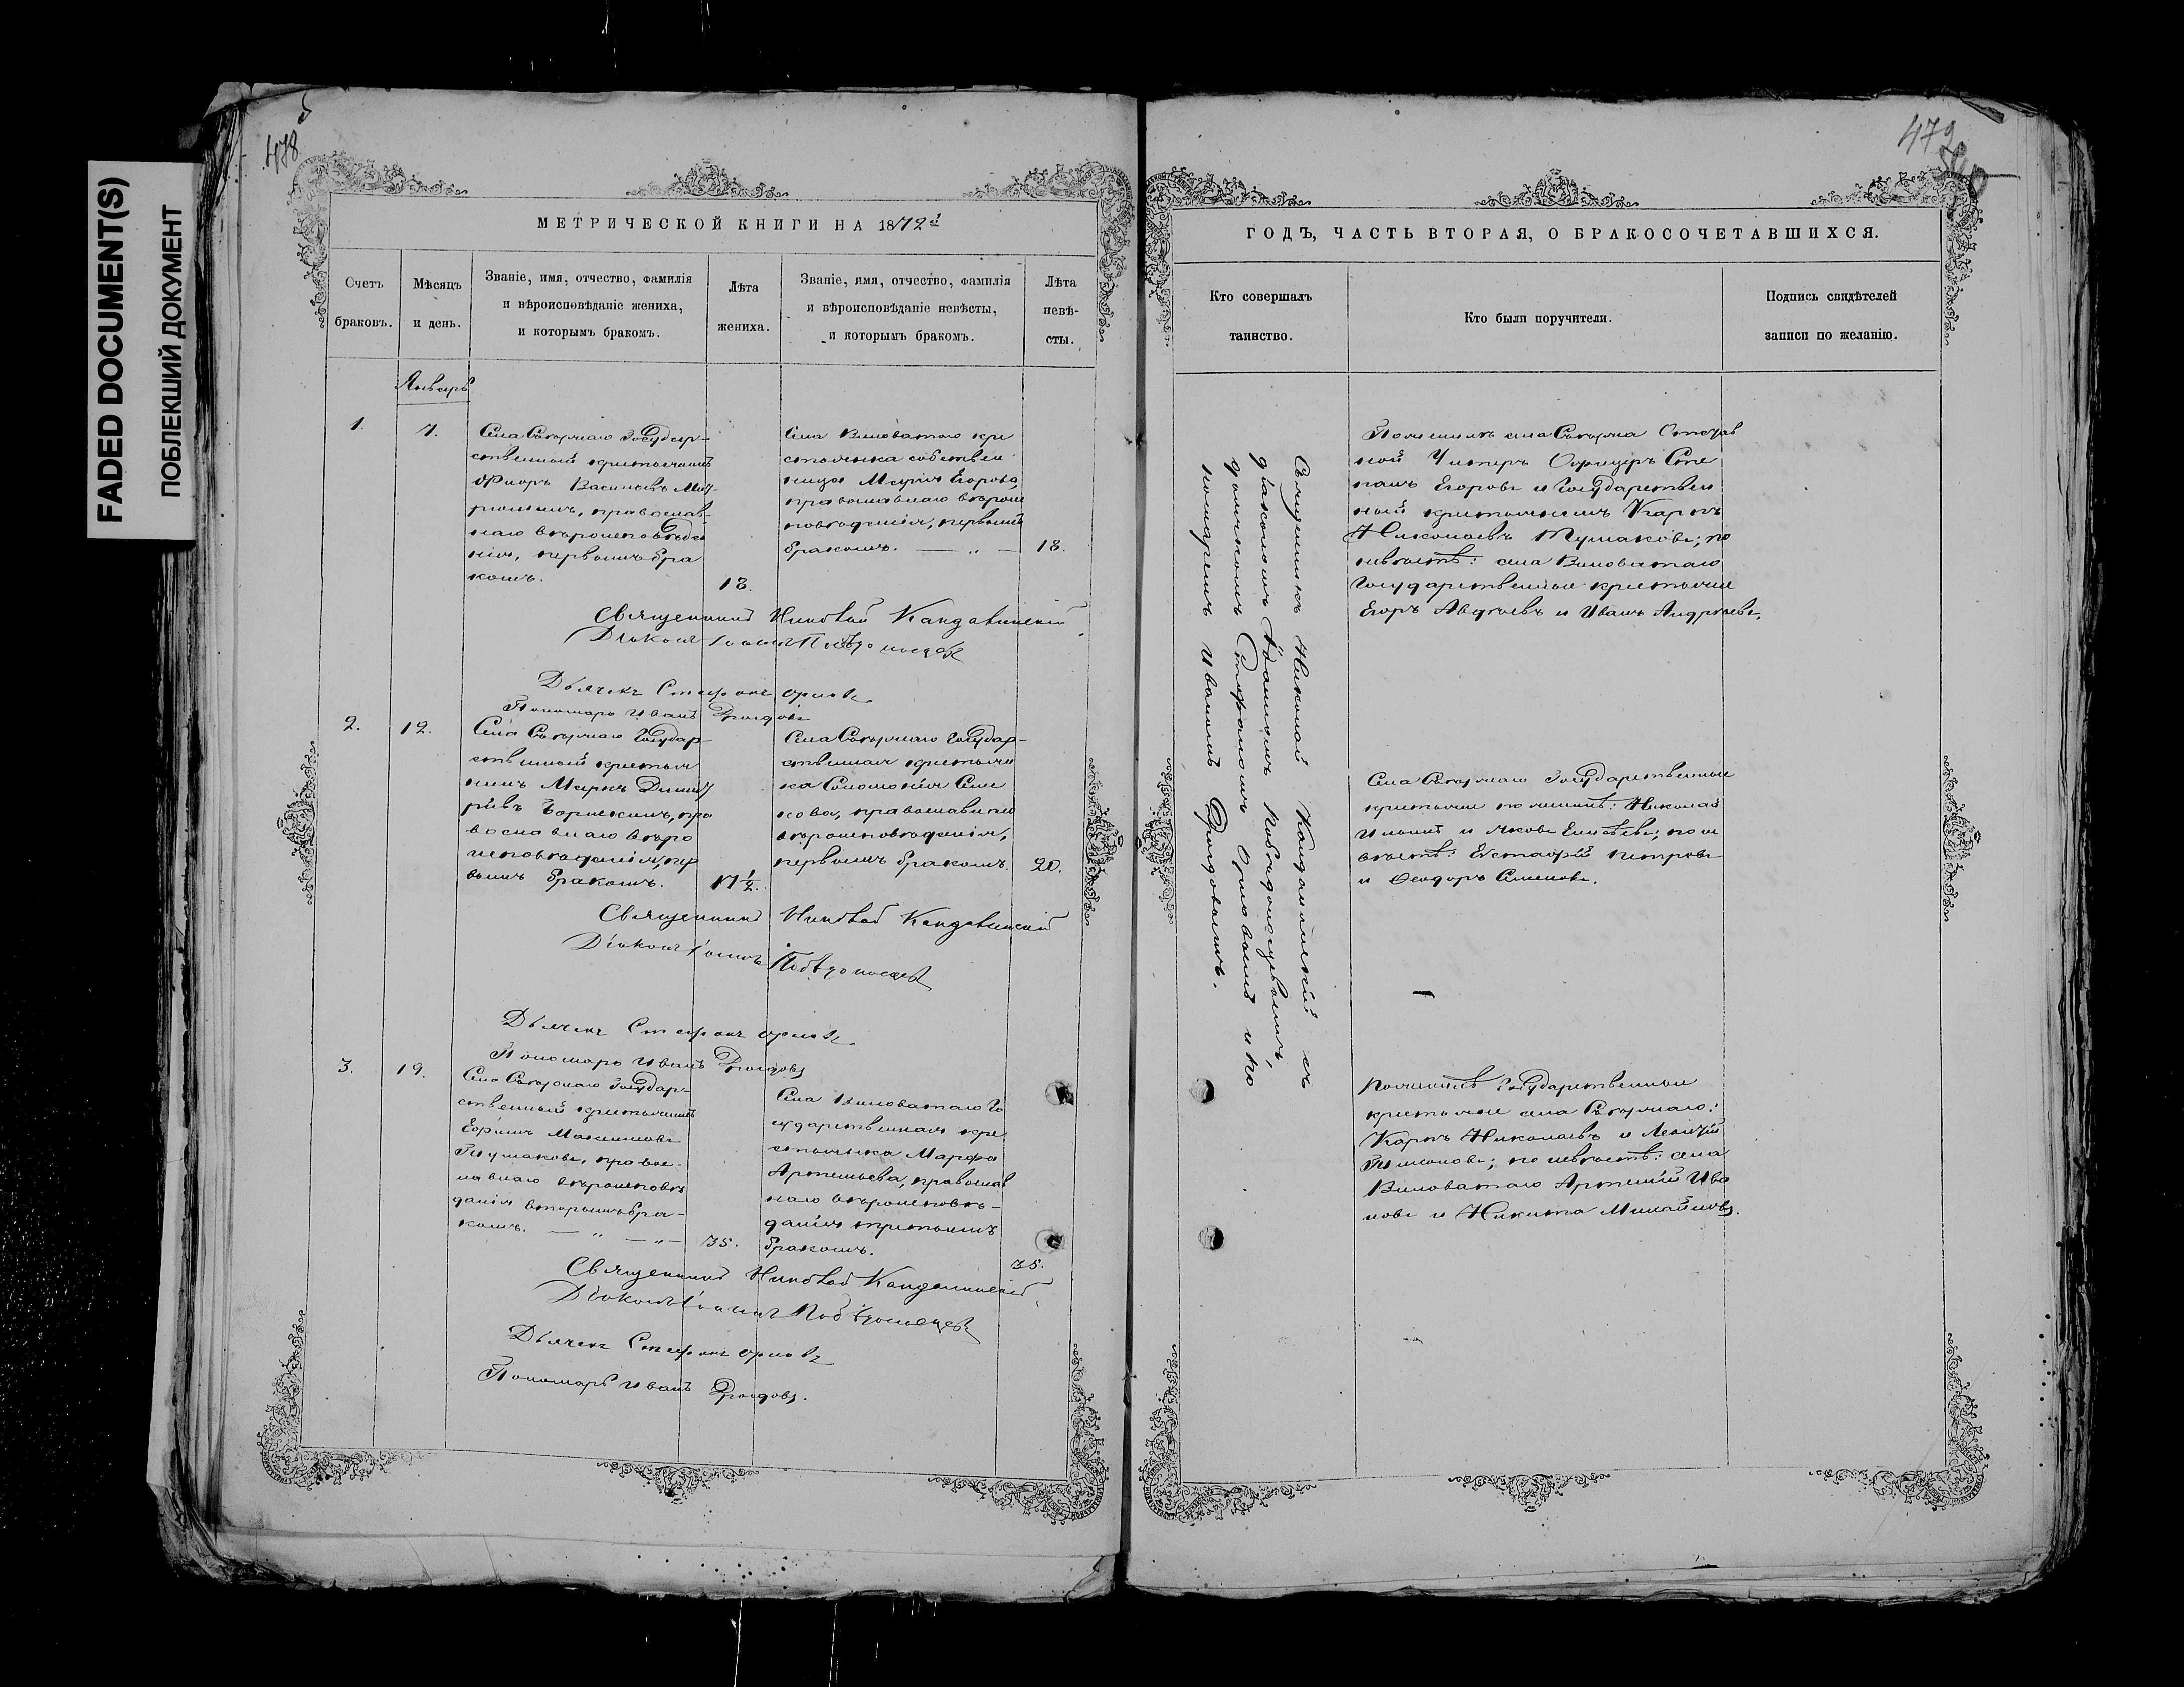 FADED DOCUMENT(S)
ПОБЛЕКШИЙ ДОКУМЕНТ
478
МЕТРИЧЕСКОЙ КНИГИ НА 1872й
Счетъ браковъ.
Мѣсяцъ и день.
Званіе, имя, отчество, фамилія
и вѣроисповѣданіе жениха,
и которымъ бракомъ.
Лѣта жениха.
Званіе, имя, отчество, фамилія
и вѣроисповѣданіе невѣсты,
и которымъ бракомъ.
Лѣта невѣ-
сты.
Январь
1.
7.
Села государ-
ственный крестьянинъ
Васильевъ
православ-
наго вѣроисповѣда
нія, первымъ бра
комъ.
18.
Села Виноватаго кре
стьянка собствен
ница Марія Егорова,
православнаго вѣроис
повѣданія, первымъ
бракомъ.
18.
Священникъ Николай
Діаконъ Іоаннъ Побѣдоносцевъ
Дьячекъ Стефанъ Орловъ
Пономарь Иванъ Дроздовъ
2.
12.
Села государ-
ственный крестья
нинъ Маркъ Димит
ріевъ пра
вославнаго вѣро
исповѣданія, пер
вымъ бракомъ.
17 1/2.
Села государ-
ственная крестьян
ка Соломонія Семе
нова, православнаго
вѣроисповѣданія,
первымъ бракомъ.
20.
Священникъ Николай
Діаконъ Іоаннъ Побѣдоносцевъ
Дьячекъ Стефанъ Орловъ
Пономарь Иванъ Дроздовъ
3.
19.
Села государ-
ственный крестьянинъ
Ефимъ Максимовъ
Тумаковъ, правос-
лавнаго вѣроисповѣ
данія вторымъ бра-
комъ.
35.
Села Виноватаго го
сударственная кре
стьянка Марфа
Артемьева, православ
наго вѣроисповѣ-
данія третьимъ
бракомъ.
35.
Священникъ Николай
Діаконъ Іоаннъ Побѣдоносцевъ
Дьячекъ Стефанъ Орловъ
Пономарь Иванъ Дроздовъ.
479
ГОДЪ, ЧАСТЬ ВТОРАЯ, О БРАКОСОЧЕТАВШИХСЯ.
Кто совершалъ
таинство.
Кто были поручители.
Подпись свидѣтелей
записи по желанію.
Священникъ Николай съ
діакономъ Іоанномъ Побѣдоносцевымъ,
дьячкомъ Стефаномъ Орловымъ и по
номаремъ Иваномъ Дроздовымъ.
По женихѣ села Отстав
ной Унтеръ Офицеръ Сте
панъ Егоровъ и государствен
ный крестьянинъ Карпъ
Николаевъ Тумаковъ; по
невѣстѣ: села Виноватаго
государственные крестьяне
Егоръ Авдѣевъ и Иванъ Андреевъ.
Села государственные
крестьяне по женихѣ: Николай
Ильинъ и Яковъ по не
вѣстѣ: Евстафій Петровъ
и Ѳеодоръ Семеновъ.
По женихѣ государственные
крестьяне села
Карпъ Николаевъ и
по невѣстѣ: села
Виноватаго Артемій Ива
новъ и Никита Михайловъ.